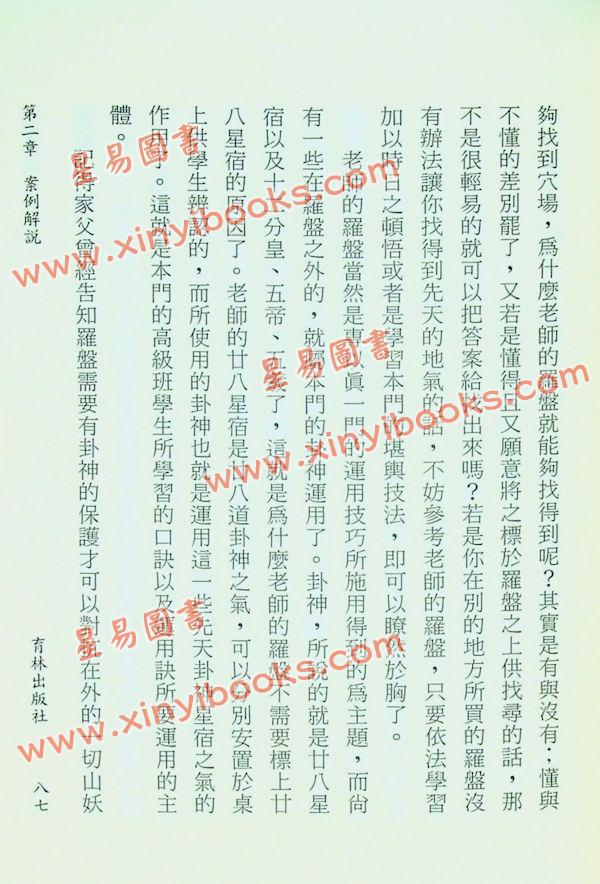 夠找到穴場，為什麼老師的羅盤就能夠找得到呢？其實是有與沒有；懂與
不懂的差別罷了，又若是懂得且又願意將之標於羅盤之上供找尋的話，那
不是很輕易的就可以把答案給找出來嗎？若是你在別的地方所買的羅盤沒
有辦法讓你找得到先天的地氣的話，不妨參考老師的羅盤，只要依法學習
加以時日之頓悟或者是學習本門的堪輿技法，即可以瞭然於胸了。
老師的羅盤當然是專以真一門的運用技巧所施用得到的為主題，而尚
有一些在羅盤之外的，就屬本門的卦神運用了。卦神，所說的就是廿八星
宿以及十二分皇、五帝、五義了，這就是為什麼老師的羅盤不需要標上廿
八星宿的原因了。老師的廿八星宿是廿八道卦神之氣，可以分別安置於桌
上供學生辨認的，而所使用的卦神也就是運用這一些先天卦神星宿之氣的
作用了。這就是本門的高級班學生所學習的口訣以及運用訣所要運用的主
體。
記得家父曾經告知羅盤需要有卦神的保護才可以對抗在外的一切山妖
第二章 案例解說
育林出版社 八七
星易圖書
www.xinyibooks.com
星易圖書
www.xinyibooks.com
星易圖書
www.xinyibooks.com